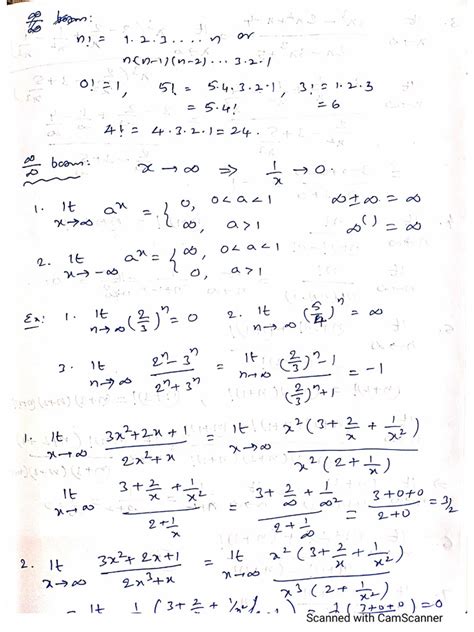 ∞/∞ form:
n! = 1.2.3.... n or
n(n-1)(n-2)... 3.2.1
0! = 1, 5! = 5.4.3.2.1, 3! = 1.2.3
= 5.4! = 6
4! = 4.3.2.1 = 24.
∞/∞ form: x → ∞ ⇒ 1/x → 0.
1. lt x→∞ a^x = { 0, 0<a<1 ∞ ± ∞ = ∞
∞, a>1 ∞^( ) = ∞
2. lt x→-∞ a^x = { ∞, 0<a<1
0, a>1
Ex: 1. lt n→∞ (2/3)^n = 0 2. lt n→∞ (5/4)^n = ∞
3. lt n→∞ (2^n - 3^n)/(2^n + 3^n) = lt n→∞ ((2/3)^n - 1)/((2/3)^n + 1) = -1
1. lt x→∞ (3x²+2x+1)/(2x²+x) = lt x→∞ x²(3+2/x+1/x²)/x²(2+1/x)
lt x→∞ (3+2/x+1/x²)/(2+1/x) = (3+2/∞+1/∞²)/(2+1/∞) = (3+0+0)/(2+0) = 3/2
2. lt x→∞ (3x²+2x+1)/(2x³+x) = lt x→∞ x²(3+2/x+1/x²)/x³(2+1/x²)
= lt 1/x (3+2/x+1/x²) = (3+0+0) = 0
Scanned with CamScanner